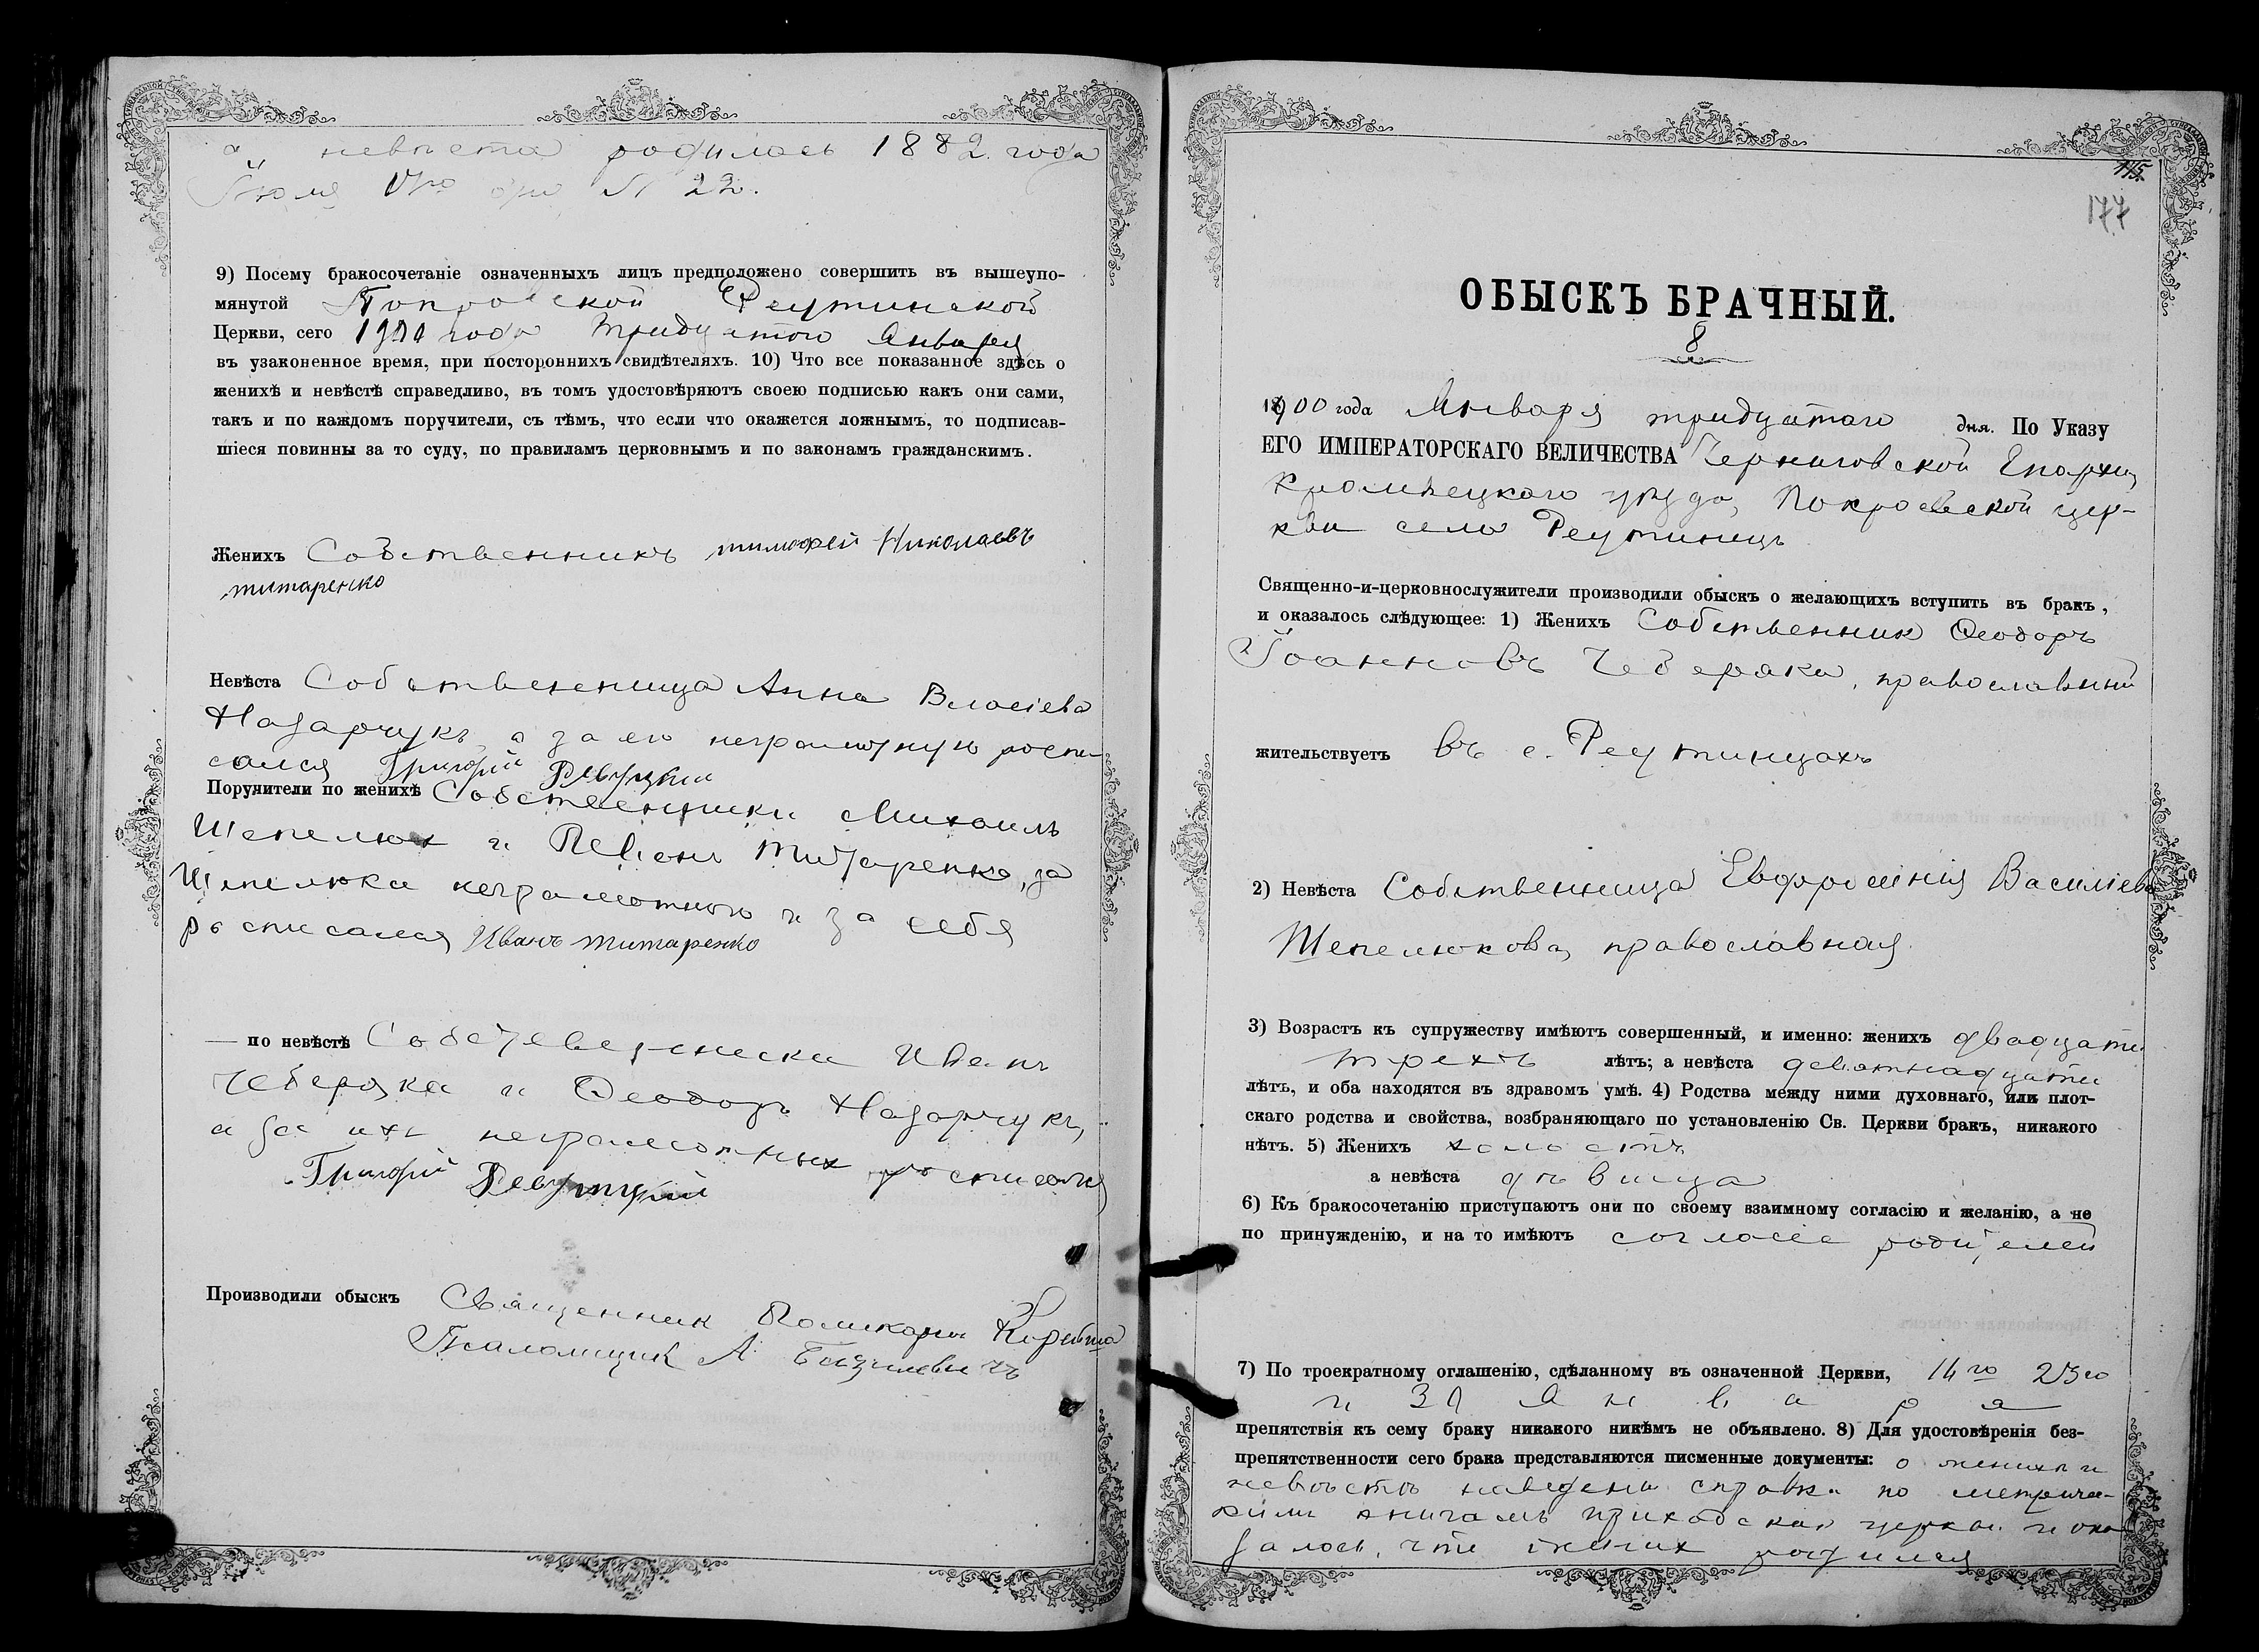 а невѣста родилась 1882 года
Іюля
№ 22.
9) Посему бракосочетаніе означенныхъ лицъ предположено совершить въ вышеупо-
мянутой Покровской Реутинской
Церкви, сего 1900 года тридцатого Января
въ узаконенное время, при постороннихъ свидѣтеляхъ. 10) Что все показанное здѣсь о
женихѣ и невѣстѣ справедливо, въ томъ удостовѣряютъ своею подписью какъ они сами,
такъ и по каждомъ поручители, съ тѣмъ, что если что окажется ложнымъ, то подписав-
шіеся повинны за то суду, по правиламъ церковнымъ и по законамъ гражданскимъ.
Женихъ Собственникъ тимофей Николаевъ
титаренко
Невѣста Собственница Анна Власіева
Назарчукъ а за ею неграмотную роспи
сался Григорій Ревуцкий
Поручители по женихѣ Собственники Михаилъ
Шепелюк и Титаренко, за
Шепелюка неграмотного и за себя
росписался Иванъ титаренко
— по невѣстѣ Иванъ
Чеберяка и Ѳеодоръ Назарчукъ,
а за ихъ неграмотных росписался
Григорій Ревуцкий
Производили обыскъ Священник Поликарпъ
Псаломщик А
175.
177
ОБЫСКЪ БРАЧНЫЙ.
8
1900 года Января тридцатаго дня. По Указу
ЕГО ИМПЕРАТОРСКАГО ВЕЛИЧЕСТВА Черниговской Епархіи
Кролевецкаго уѣзда, Покровской цер-
кви села Реутинецъ
Священно-и-церковнослужители производили обыскъ о желающихъ вступить въ бракъ,
и оказалось слѣдующее: 1) Женихъ Собственник Ѳеодоръ
Іоанновъ Чеберяка, православный
жительствуетъ въ с. Реутинцахъ
2) Невѣста Собственница Евфросинія Василіева
Шепелюкова, православная
3) Возрастъ къ супружеству имѣютъ совершенный, и именно: женихъ двадцати
трехъ лѣтъ; а невѣста девятнадцати
лѣтъ, и оба находятся въ здравомъ умѣ. 4) Родства между ними духовнаго, или плот-
скаго родства и свойства, возбраняющаго по установленію Св. Церкви бракъ, никакого
нѣтъ. 5) Женихъ холостъ
а невѣста дѣвица
6) Къ бракосочетанію приступаютъ они по своему взаимному согласію и желанію, а не
по принужденію, и на то имѣютъ согласіе родителей
7) По троекратному оглашенію, сдѣланному въ означенной Церкви, 14го 23го
и 30 Января
препятствія къ сему браку никакого никѣмъ не объявлено. 8) Для удостовѣренія без-
препятственности сего брака представляются писменные документы: о женихѣ и
невѣстѣ наведены справки по метриче-
скимъ книгамъ приходской церкви и ока
залось, что женихъ родился